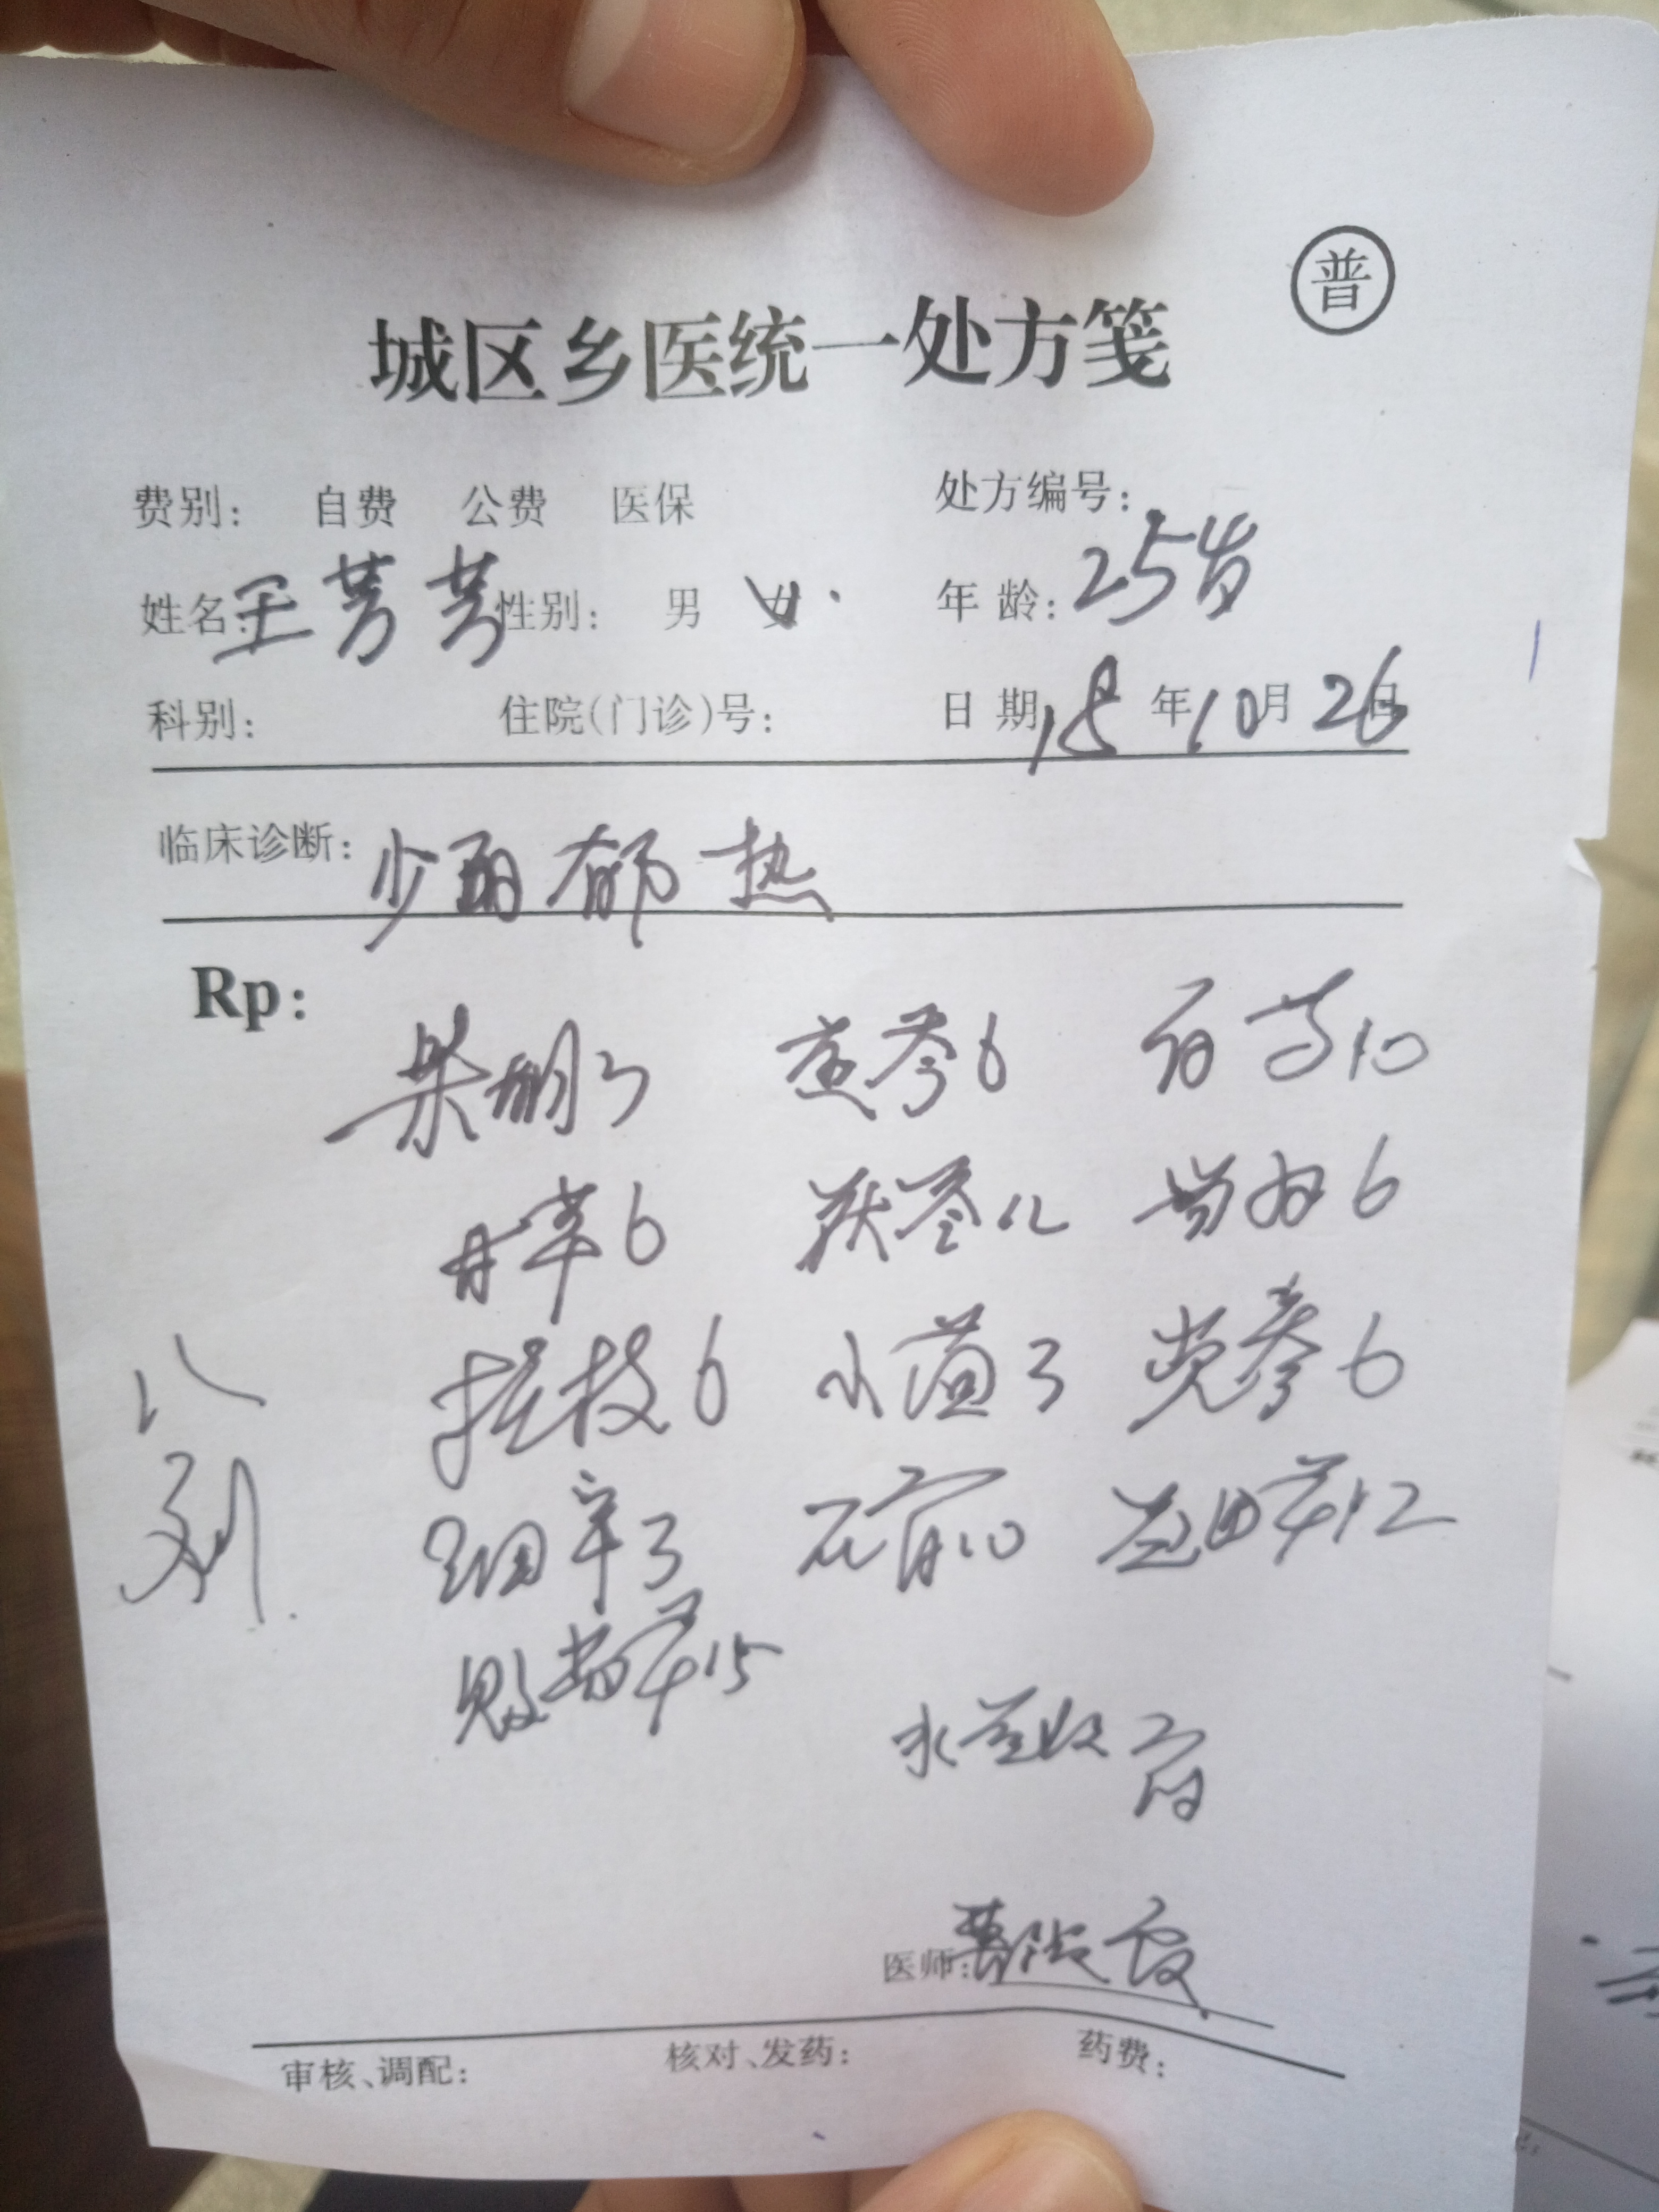 普
城区乡医统一处方笺
费别: 自费 公费 医保 处方编号:
姓名: 王芳芳 性别: 男 女 年龄: 25岁
科别: 住院(门诊)号: 日期 18年10月26日
临床诊断: 少阳郁热
Rp:
柴胡3 黄芩6 白芍10
甘草6 茯苓12 当归6
桂枝6 小茴3 党参6
细辛3 元胡10 益母草12
败酱草15
八剂
水煎服
医师:
审核、调配: 核对、发药: 药费: